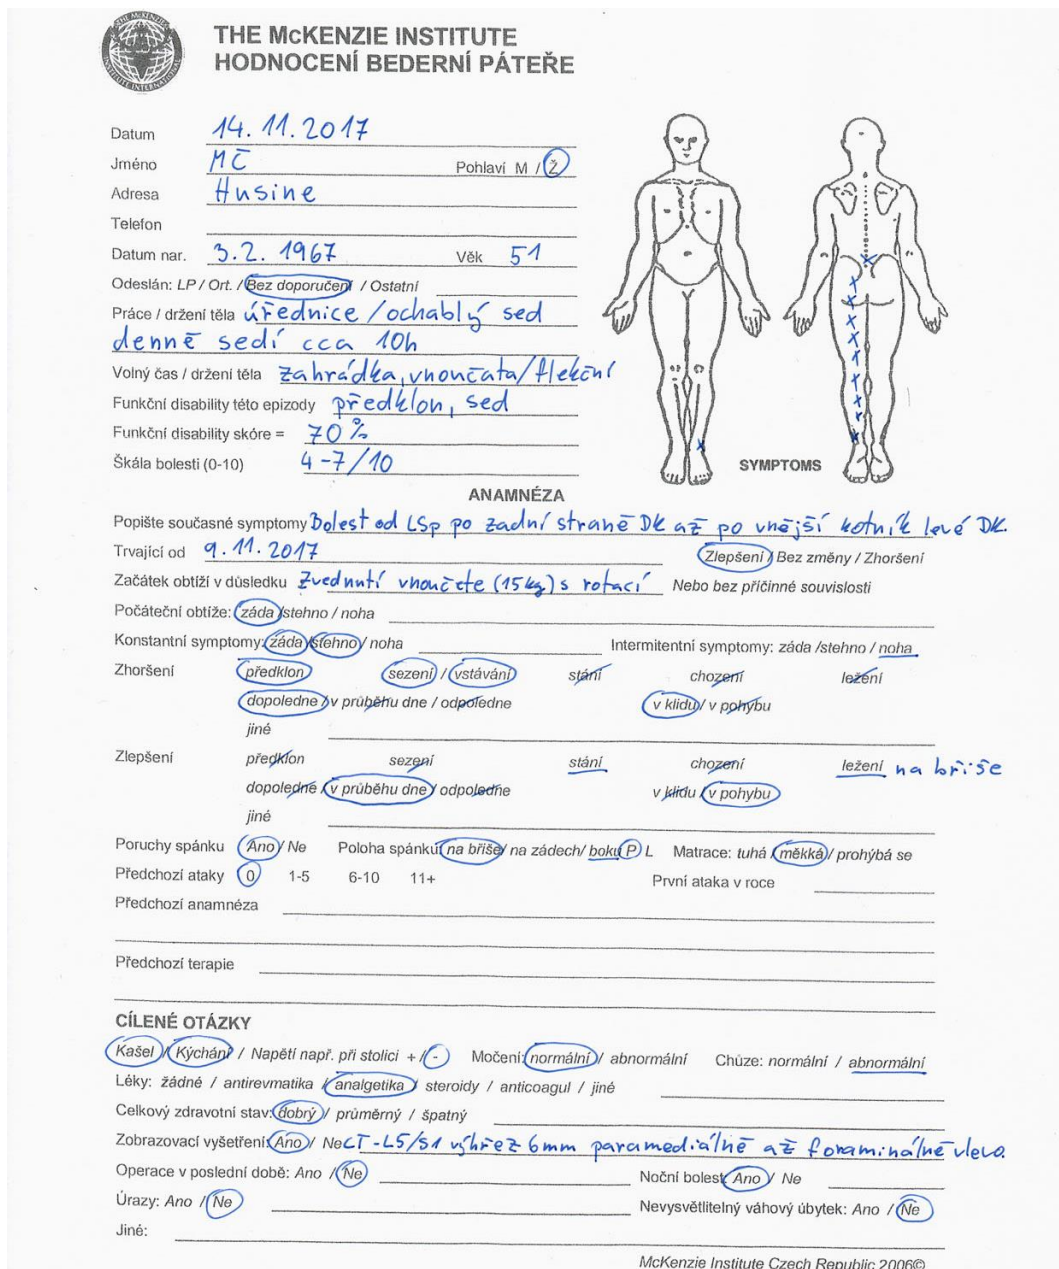 THE McKENZIE INSTITUTE
HODNOCENÍ BEDERNÍ PÁTEŘE
Datum 14. 11. 2017
Jméno MČ Pohlaví M / Ž
Adresa Husine
Telefon
Datum nar. 3. 2. 1967 Věk 51
Odeslán: LP / Ort. / Bez doporučení / Ostatní
Práce / držení těla úřednice / ochablý sed
denně sedí cca 10h
Volný čas / držení těla zahrádka, vnoučata/flekční
Funkční disability této epizody předklon, sed
Funkční disability skóre = 70%
Škála bolesti (0-10) 4-7/10
SYMPTOMS
ANAMNÉZA
Popište současné symptomy Bolest od LSp po zadní straně DK až po vnější kotník levé DK.
Trvající od 9. 11. 2017 Zlepšení / Bez změny / Zhoršení
Začátek obtíží v důsledku Zvednutí vnoučete (15kg) s rotací Nebo bez příčinné souvislosti
Počáteční obtíže: záda /stehno / noha
Konstantní symptomy: záda /stehno / noha Intermitentní symptomy: záda /stehno / noha
Zhoršení předklon sezení / vstávání stání chození ležení
dopoledne / v průběhu dne / odpoledne v klidu / v pohybu
jiné
Zlepšení předklon sezení stání chození ležení na břiše
dopoledne / v průběhu dne / odpoledne v klidu / v pohybu
jiné
Poruchy spánku Ano / Ne Poloha spánku: na břiše/ na zádech/ boku P L Matrace: tuhá / měkká / prohýbá se
Předchozí ataky 0 1-5 6-10 11+ První ataka v roce
Předchozí anamnéza
Předchozí terapie
CÍLENÉ OTÁZKY
Kašel / Kýchání / Napětí např. při stolici + / - Močení: normální / abnormální Chůze: normální / abnormální
Léky: žádné / antirevmatika / analgetika / steroidy / anticoagul / jiné
Celkový zdravotní stav: dobrý / průměrný / špatný
Zobrazovací vyšetření: Ano / Ne CT - L5/S1 výhřez 6mm paramediálně až foraminálně vlevo.
Operace v poslední době: Ano / Ne Noční bolest: Ano / Ne
Úrazy: Ano / Ne Nevysvětlitelný váhový úbytek: Ano / Ne
Jiné:
McKenzie Institute Czech Republic 2006©